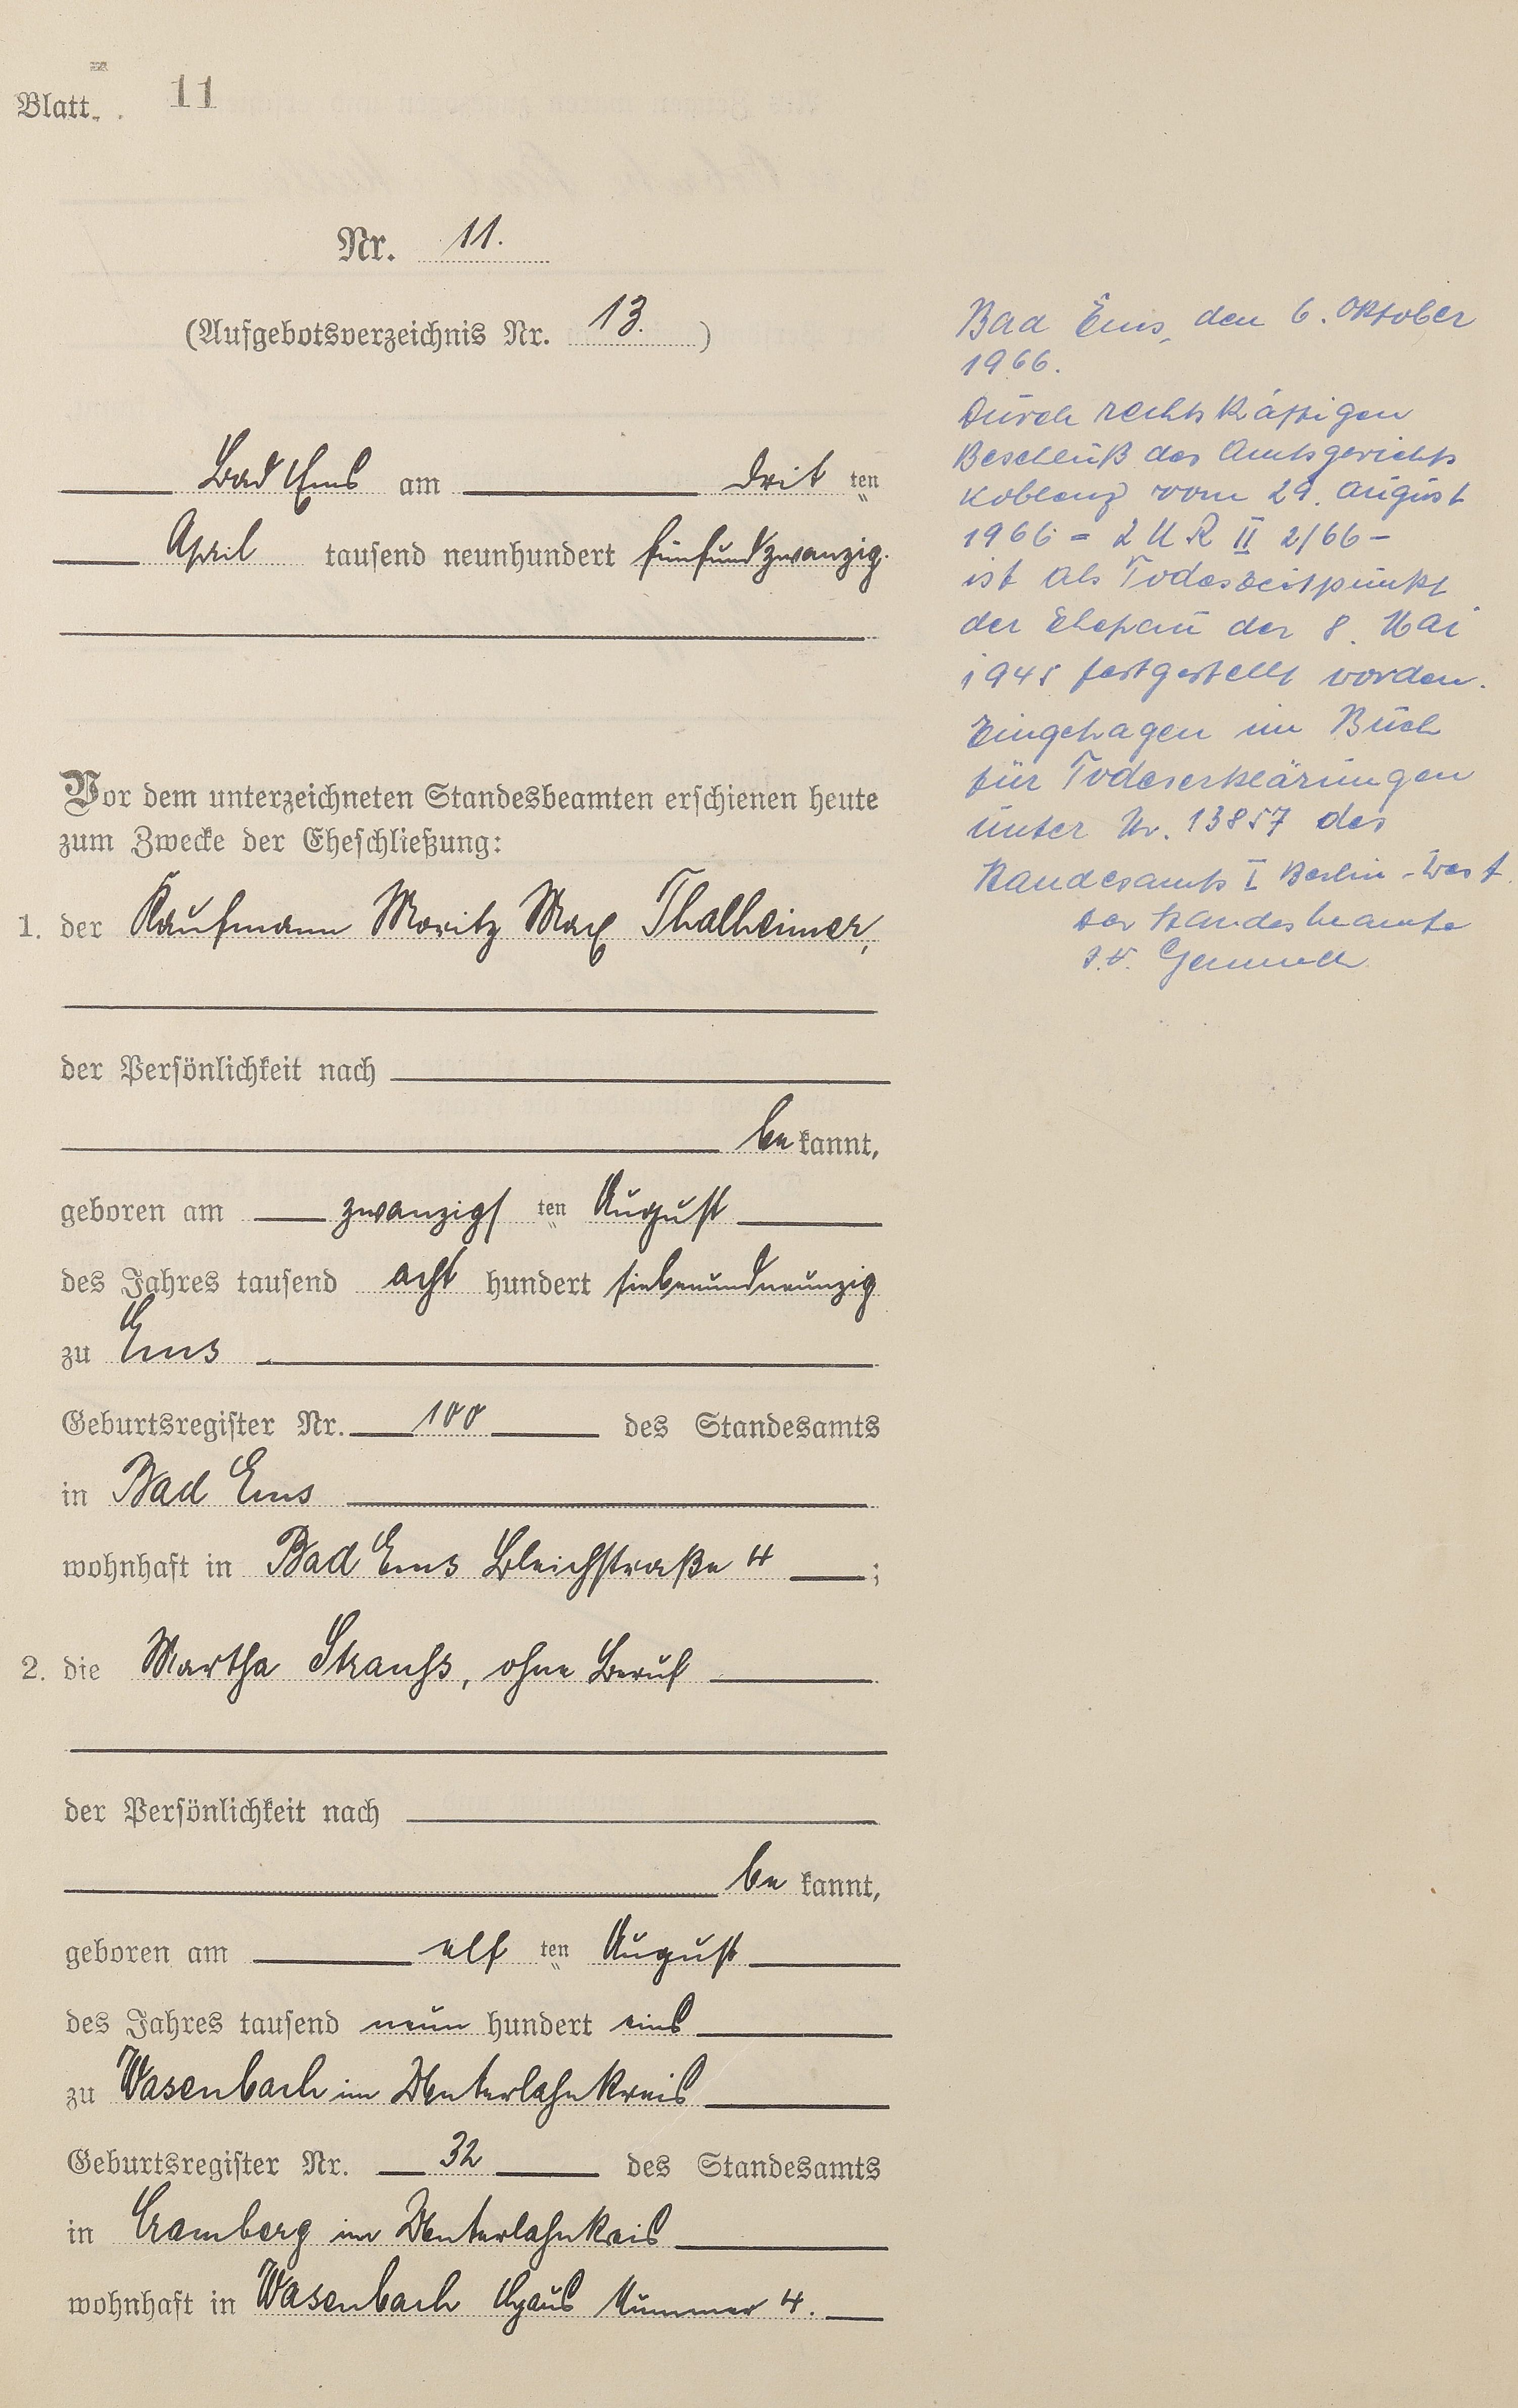 Blatt 11
Nr. 11.
(Aufgebotsverzeichnis Nr. 13.)
Bad Ems am dritten
April tausend neunhundert fünfundzwanzig.
Vor dem unterzeichneten Standesbeamten erschienen heute
zum Zwecke der Eheschließung:
1. der Kaufmann Moritz Max Thalheimer,
der Persönlichkeit nach
bekannt,
geboren am zwanzigsten August
des Jahres tausend acht hundert siebenundneunzig
zu Ems
Geburtsregister Nr. 100 des Standesamts
in Bad Ems
wohnhaft in Bad Ems Bleichstraße 4 ;
2. die Martha Strauss, ohne Beruf
der Persönlichkeit nach
bekannt,
geboren am elften August
des Jahres tausend neun hundert eins
zu Wasenbach im Unterlahnkreis
Geburtsregister Nr. 32 des Standesamts
in Cramberg im Unterlahnkreis
wohnhaft in Wasenbach Haus Nummer 4.
Bad Ems, den 6. Oktober
1966.
Durch rechtskäftigen
Beschluß des Amtsgerichts
Koblenz vom 29. August
1966 - 2 UR II 2/66 -
ist als Todeszeitpunkt
der Ehefrau der 8. Mai
1945 festgestellt worden.
Eingetragen im Buch
für Todeserklärungen
unter Nr. 13857 des
Standesamts I Berlin-West.
Der Standesbeamte